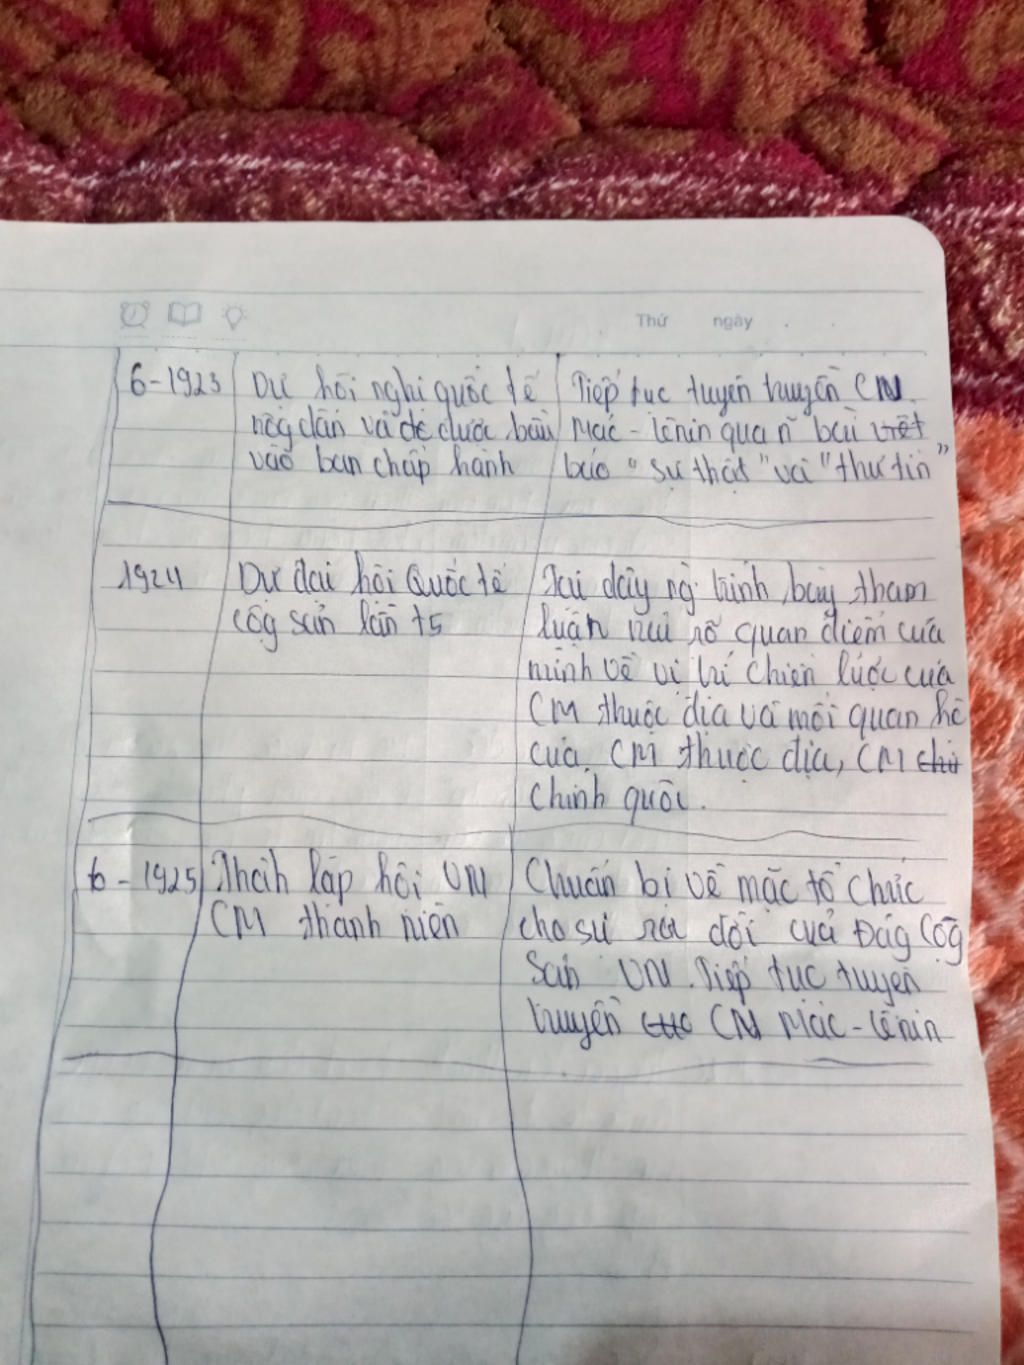 Thứ ngày
6-1923
Dự hội nghị quốc tế
nôg dân và đc được bầu
vào ban chấp hành
Tiếp tục tuyên truyền CN
Mác - Lênin qua ñ bài viết
báo "sự thật" và "thư tín"
1924
Dự đại hội Quốc tế
cộg sản lần t5
Tại đây ng trình bày tham
luận nói rõ quan điểm của
mình về vị trí chiến lược của
CM thuộc địa và mối quan hệ
của CM thuộc địa, CM chí
Chính quốc.
6 - 1925
Thàh lập hội VN
CM thanh niên
Chuẩn bị về mặc tổ chức
cho sự ra đời của Đảg Cộg
Sản VN. Tiếp tục tuyên
truyền CN Mác - Lênin